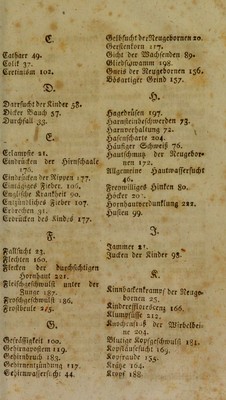 C.
Catharr 49.
Colik 37.
Cretinism 102.
D.
Darrsucht der Kinder 58.
Dicker Bauch 57.
Durchfall 33.
E.
Eclampsie 21.
Eindrücken der Hirnschaale
176.
Eindrücken der Rippen 177.
Eintägiges Fieber. 106.
Englische Krankheit 90.
Entzündliches Fieber 107.
Erbrechen 31.
des Kinds 177.
F.
Fallsucht 23.
Flechten 160.
Flecken der durchsichtigen
Hornhaut 221.
Fleischgeschwulst unter der
Zunge 187.
Froschgeschwulst 186.
Frostbeule 215.
G.
Gefräßigkeit 100.
Gehirnapostem 119.
Gehirnbruch 183.
Gehirnentzündung 117.
Gehirnwassersucht 44.
Gelbsucht der Neugebornen 20.
Gerstenkorn 217.
Gicht der Wachsenden 89.
Gliedschwamm 198.
Gneis der Neugebornen 156.
Bösartiger Grind 157.
H.
Hagedrüsen 197.
Harnsteinbeschwerden 73.
Harnverhaltung 72.
Hasenscharte 204.
Häufiger Schweiß 76.
Hautschmutz der Neugebor-
nen 172.
Allgemeine Hautwassersucht
46.
Freywilliges Hinken 80.
Höcker 20
Hornhautverdunklung 222.
Husten 99.
J.
Jammer 21.
Jucken der Kinder 98.
K.
Kinnbackenkrampf der Neuge-
bornen 25.
Kindereffloreszenz 166.
Klumpfüsse 212.
der Wirbelbei-
ne 204.
Blutige Kopfgeschwulst 181.
Kopfläusesucht 169.
Kopfraude 155.
Krätze 164.
Kropf 188.